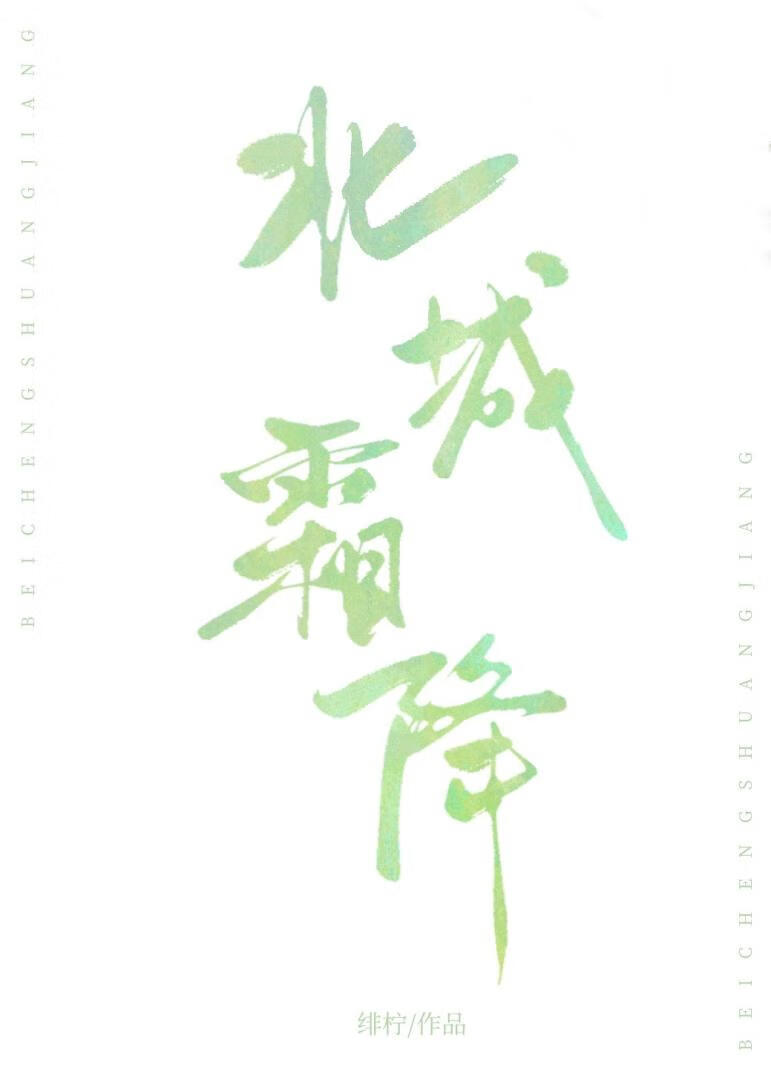 BEICHENGSHUANGJIANG
北城霜降
BEICHENGSHUANGJIANG
绯柠/作品